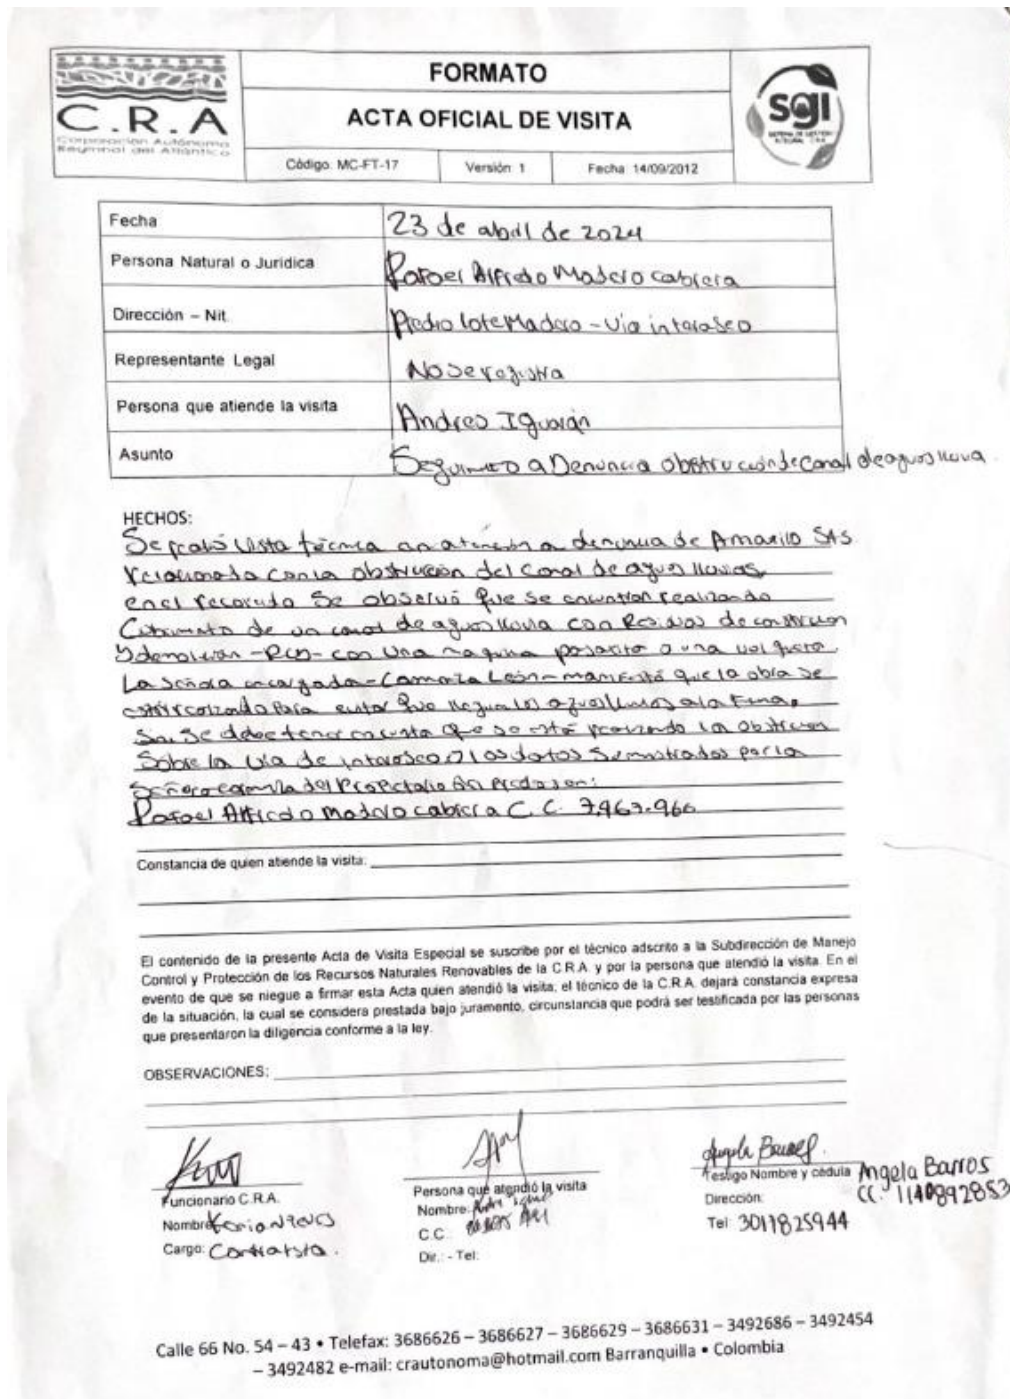 C.R.A
Corporación Autónoma
Regional del Atlántico
FORMATO
ACTA OFICIAL DE VISITA
Código: MC-FT-17 Versión 1 Fecha: 14/09/2012
sgi
Fecha 23 de abril de 2024
Persona Natural o Jurídica Rafael Alfredo Madero Cabrera
Dirección – Nit. Predio lote Madero - Via interaseo
Representante Legal No se registra
Persona que atiende la visita Andres Iguarán
Asunto Seguimiento a Denuncia obstrucción de canal de aguas lluvia
HECHOS:
Se realizó visita técnica en atención a denuncia de Amarilo SAS
relacionada con la obstrucción del canal de aguas lluvias,
en el recorrido se observó que se encuentran realizando
de un canal de aguas lluvia con Residuos de construcción
y demolición -RCD- con una maquina
La señora encargada - León - manifestó que la obra se
está realizando para evitar que lleguen las aguas lluvias a la Finca,
se debe tener en cuenta que se está realizando la obstrucción
Sobre la via de interaseo los datos suministrados por la
Señora del Propietario del Predio son:
Rafael Alfredo Madero cabrera C.C. 7.963.966
Constancia de quien atiende la visita:
El contenido de la presente Acta de Visita Especial se suscribe por el técnico adscrito a la Subdirección de Manejo
Control y Protección de los Recursos Naturales Renovables de la C.R.A. y por la persona que atendió la visita. En el
evento de que se niegue a firmar esta Acta quien atendió la visita; el técnico de la C.R.A. dejará constancia expresa
de la situación, la cual se considera prestada bajo juramento, circunstancia que podrá ser testificada por las personas
que presentaron la diligencia conforme a la ley.
OBSERVACIONES:
Funcionario C.R.A.
Nombre
Cargo: Contratista.
Persona que atendió la visita
Nombre:
C.C.
Dir.: - Tel:
Testigo Nombre y cédula Angela Barros
CC. 1140892853
Dirección:
Tel: 3011825944
Calle 66 No. 54 – 43 • Telefax: 3686626 – 3686627 – 3686629 – 3686631 – 3492686 – 3492454
– 3492482 e-mail: crautonoma@hotmail.com Barranquilla • Colombia